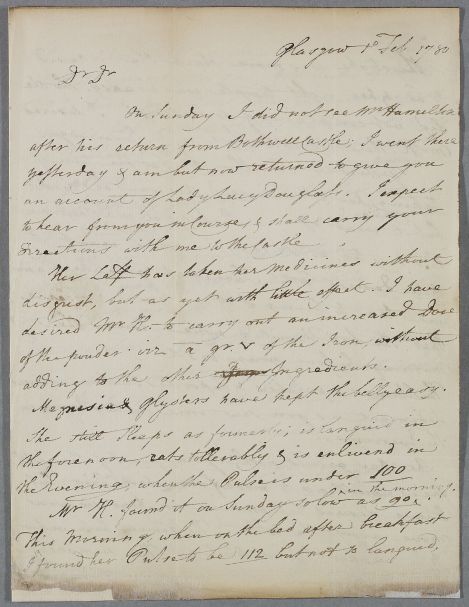 Glasgow 1st Feb. 1780
Dr Dr
On Sunday I did not see Mr Hamilton
after his return from Bothwell Castle; I went there
yesterday & am but now returned to give you
an account of Lady Lucy Douglass. I expect
to hear from you in Course, & shall carry your
Directions with me to the Castle
Her LaP has taken her medicines without
disgust, but as yet with little effect. I have
desired Mr H. to carry out an increased Dose
of the powder viz a gr. v of the Iron, without
adding to the other Ingredients.
Magnesia & Glysters have kept the belly easy.
She still sleeps as formerly; is languid in
the forenoon, eats tollerably & is enlivend in
the Evening when the Pulse is under 100
Mr H. found it on Sunday so low as 90. in the morning.
This Morning, when on the bed after breakfast
I found her Pulse to be 112 but not so languid.